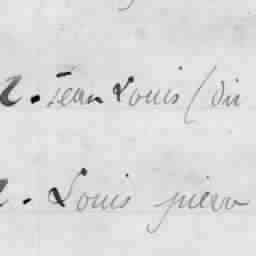 . Jean Louis (dit
. Louis pierre